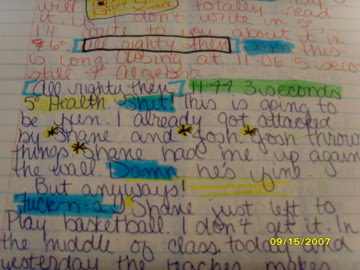 will totally read
it. I don't write in it
I'll write to you about it in
9/6. All righty then Damn this
is long. Closing at 11:06 5 seconds
still 7° Algebra
All righty then 11:44 3 seconds
5° Health. Shut! This is going to
be fun. I already got attacked
by Shane and Josh. Josh throws
things. Shane had me up again
the wall. Damn he's fine
But anyways!
Fuck-n-a Shane just left to
Play basketball. I don't get it. In
the middle of class. today and
yesterday the teacher
09/15/2007